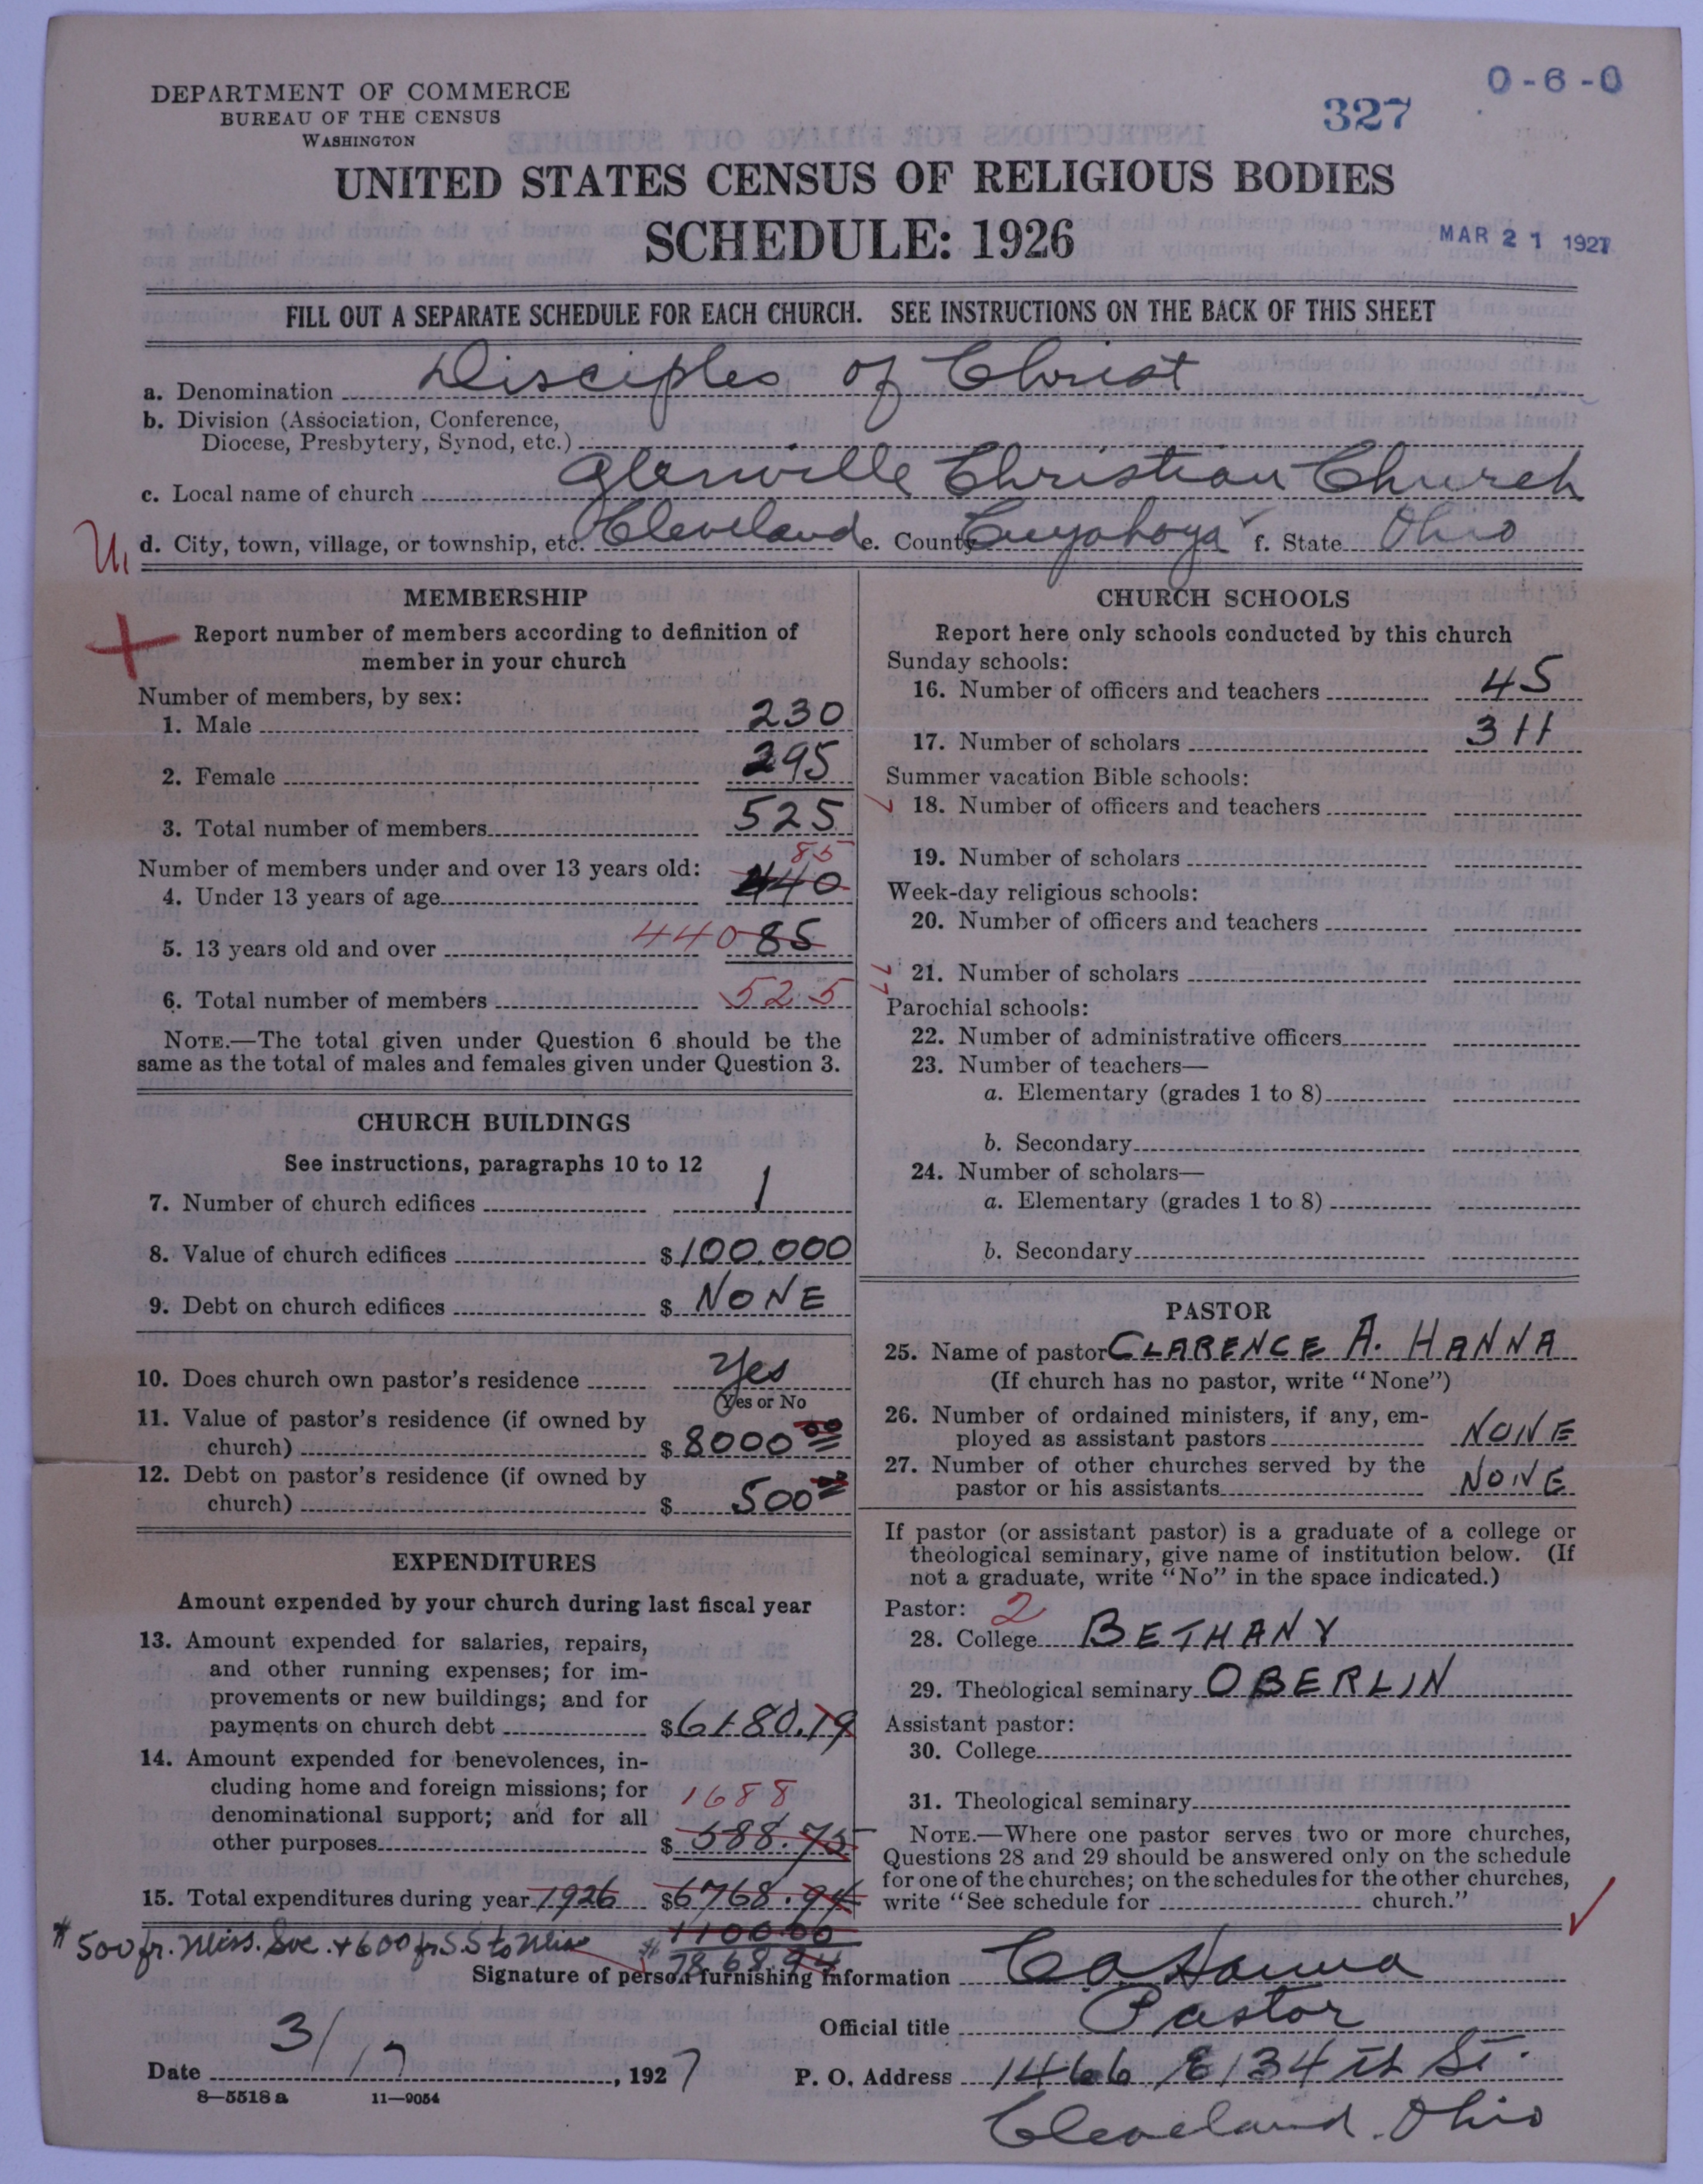 0-6-0
DEPARTMENT OF COMMERCE
327
BUREAU OF THE CENSUS
WASHINGTON
UNITED STATES CENSUS OF RELIGIOUS BODIES
SCHEDULE: 1926
MAR 21 1927
FILL OUT A SEPARATE SCHEDULE FOR EACH CHURCH. SEE INSTRUCTIONS ON THE BACK OF THIS SHEET
a. Denomination Disciples of Christ
b. Division (Association, Conference,
Diocese, Presbytery, Synod, etc.)
c. Local name of church Glenville Christian Church
d. City, town, village, or township, etc. Cleveland e. County Cuyahoga f. State Ohio
MEMBERSHIP
Report number of members according to definition of
member in your church
Number of members, by sex:
1. Male 230
2. Female 295
3. Total number of members 525
85
Number of members under and over 13 years old:
4. Under 13 years of age 440
5. 13 years old and over 440 85
6. Total number of members 525
NOTE.—The total given under Question 6 should be the
same as the total of males and females given under Question 3.
CHURCH BUILDINGS
See instructions, paragraphs 10 to 12
7. Number of church edifices 1
8. Value of church edifices $100.000
9. Debt on church edifices $ NONE
10. Does church own pastor's residence Yes
Yes or No
11. Value of pastor's residence (if owned by
church) $ 8000 00
12. Debt on pastor's residence (if owned by
church) $ 500 00
EXPENDITURES
Amount expended by your church during last fiscal year
13. Amount expended for salaries, repairs,
and other running expenses; for im-
provements or new buildings; and for
payments on church debt $6180.19
14. Amount expended for benevolences, in-
cluding home and foreign missions; for 1688
denominational support; and for all
other purposes $ 588.75
15. Total expenditures during year 1926 $6768.94
1100.00
# 500 fr. Miss. Soc. + 600 fr S.S to Miss
$ 7868.94
CHURCH SCHOOLS
Report here only schools conducted by this church
Sunday schools:
16. Number of officers and teachers 45
17. Number of scholars 311
Summer vacation Bible schools:
18. Number of officers and teachers
19. Number of scholars
Week-day religious schools:
20. Number of officers and teachers
21. Number of scholars
Parochial schools:
22. Number of administrative officers
23. Number of teachers—
a. Elementary (grades 1 to 8)
b. Secondary
24. Number of scholars—
a. Elementary (grades 1 to 8)
b. Secondary
PASTOR
25. Name of pastor CLARENCE A. HANNA
(If church has no pastor, write "None")
26. Number of ordained ministers, if any, em-
ployed as assistant pastors NONE
27. Number of other churches served by the
pastor or his assistants NONE
If pastor (or assistant pastor) is a graduate of a college or
theological seminary, give name of institution below. (If
not a graduate, write "No" in the space indicated.)
Pastor: 2
28. College BETHANY
29. Theological seminary OBERLIN
Assistant pastor:
30. College
31. Theological seminary
NOTE.—Where one pastor serves two or more churches,
Questions 28 and 29 should be answered only on the schedule
for one of the churches; on the schedules for the other churches,
write "See schedule for church."
Signature of person furnishing information C A Hanna
Official title Pastor
Date 3/17, 1927
P. O. Address 1466 E 134 th St.
Cleveland. Ohio
8—5518 a 11—9054